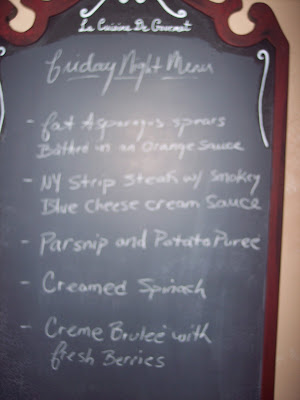 La Cuisine De Gourmet
Friday Night Menu
- fat Asparagus spears
Bathed in an Orange Sauce
- NY Strip Steak w/ Smokey
Blue Cheese cream Sauce
- Parsnip and Potato Puree
- Creamed Spinach
- Creme Brulee with
fresh Berries